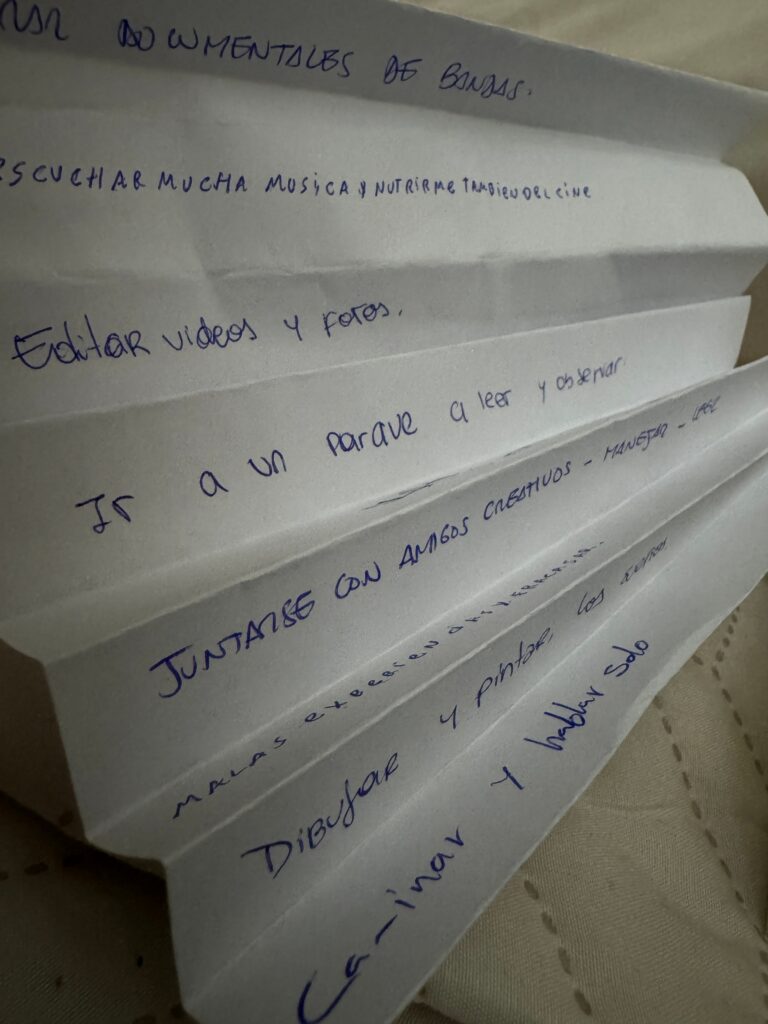 DOCUMENTALES DE BANDAS.
ESCUCHAR MUCHA MUSICA Y NUTRIRME TAMBIEN DEL CINE
Editar videos y fotos.
Ir a un parque a leer y observar.
JUNTARSE CON AMIGOS CREATIVOS - MANEJAR - LEER
MALAS
Dibujar y pintar, los
Caminar y hablar solo